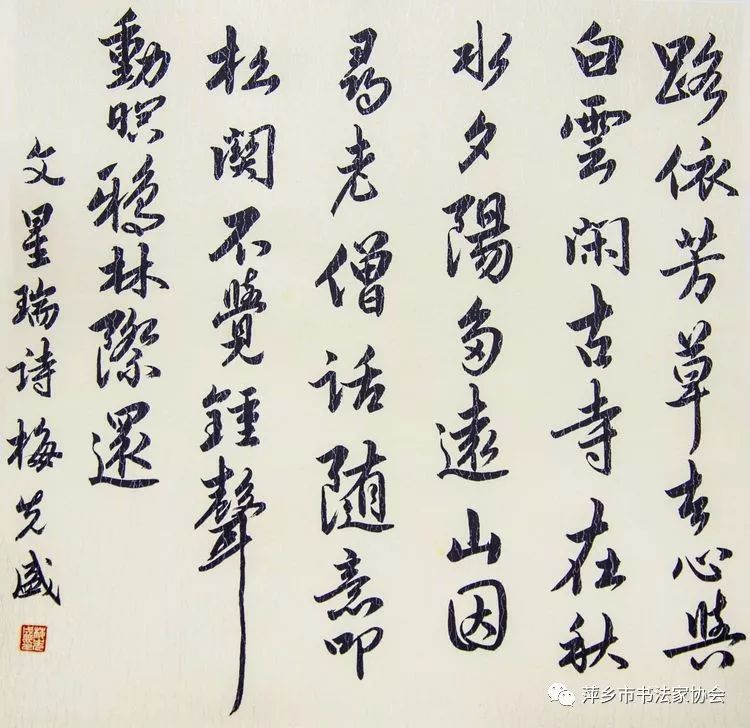 路依芳草去心與
白雲闲古寺在秋
水夕陽多遠山因
尋老僧话随意叩
松関不覺鍾聲
動暝鴉林際還
文星瑞诗梅先盛
萍乡市书法家协会